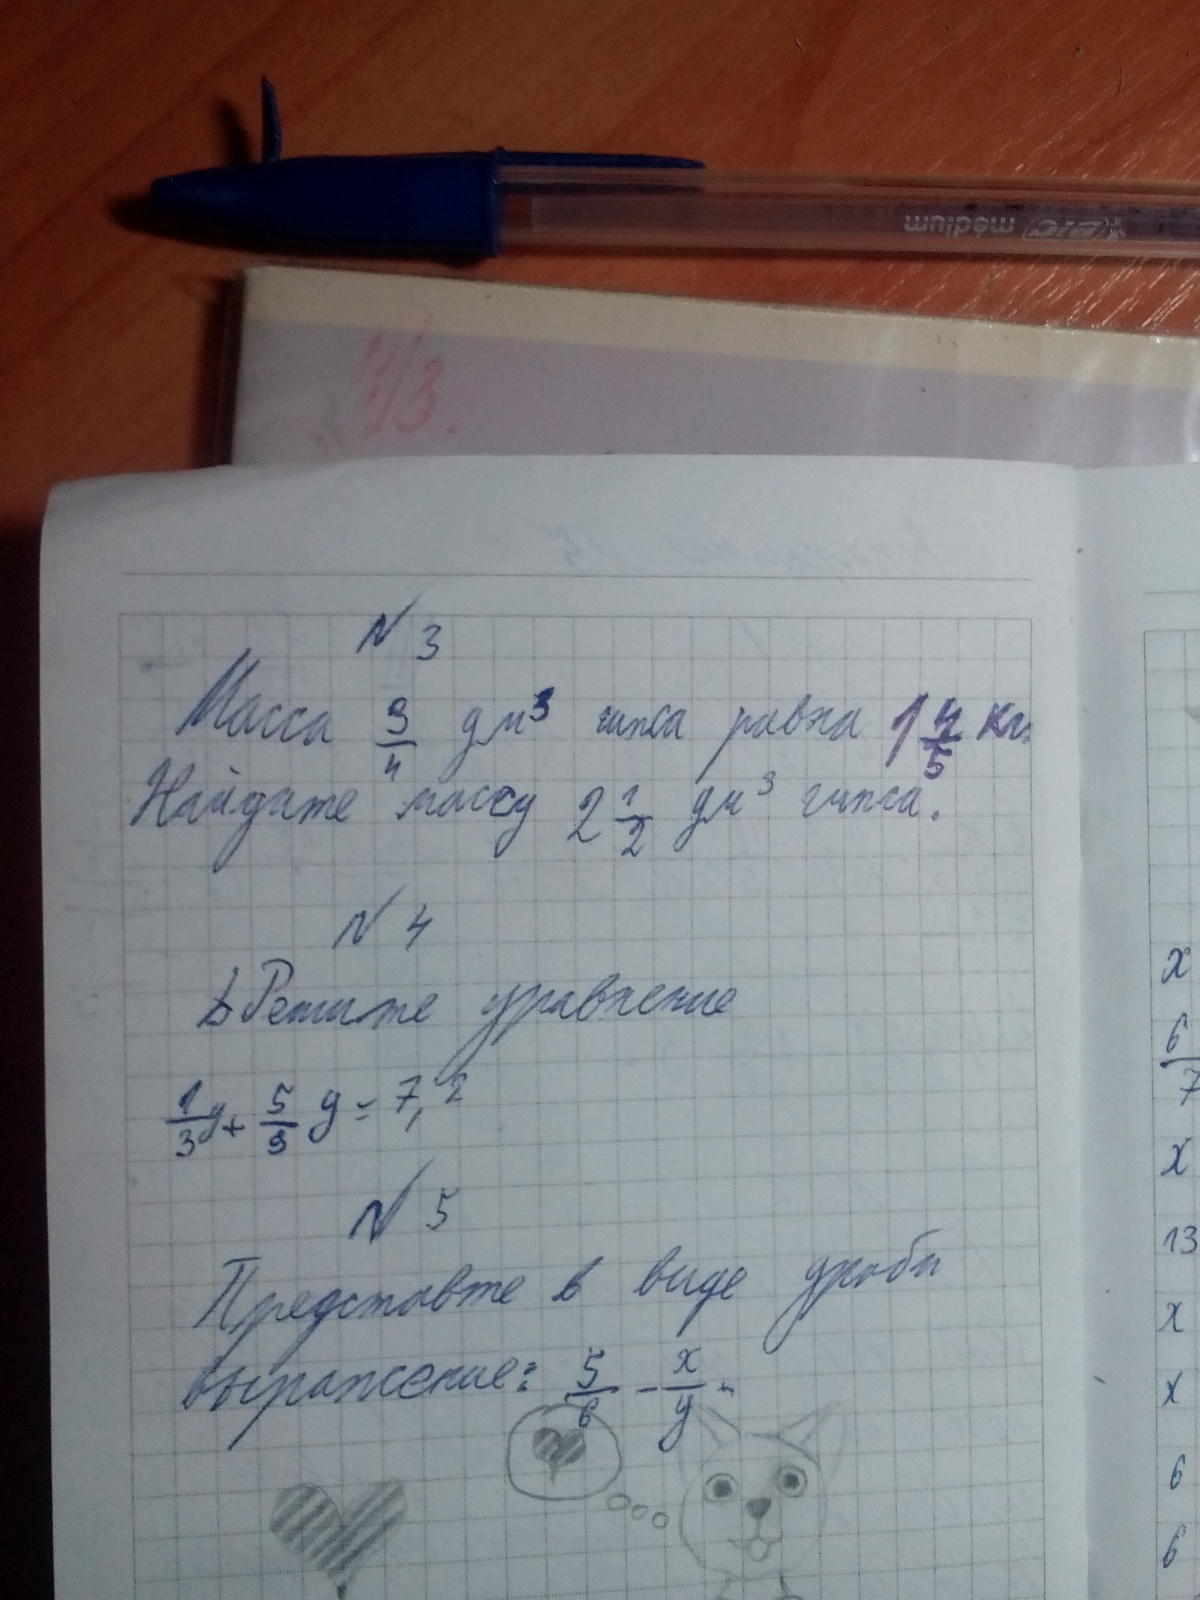 BIC medium
11/3.
N 3
Масса 3/4 дм³ гипса равна 1 4/5 кг.
Найдите массу 2 1/2 дм³ гипса.
N 4
Решите уравнение
1/3 y + 5/9 y = 7,2
N 5
Представте в виде дроби
выражение: 5/6 - x/y .
x
6/7
x
13
x
x
6
6